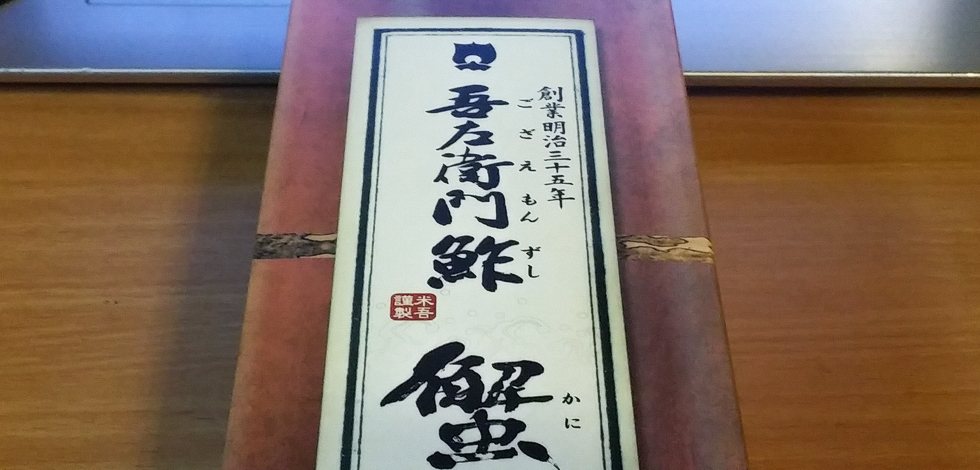 創業明治三十五年
ござえもんずし
吾左衛門鮓
米吾
謹製
かに
蟹